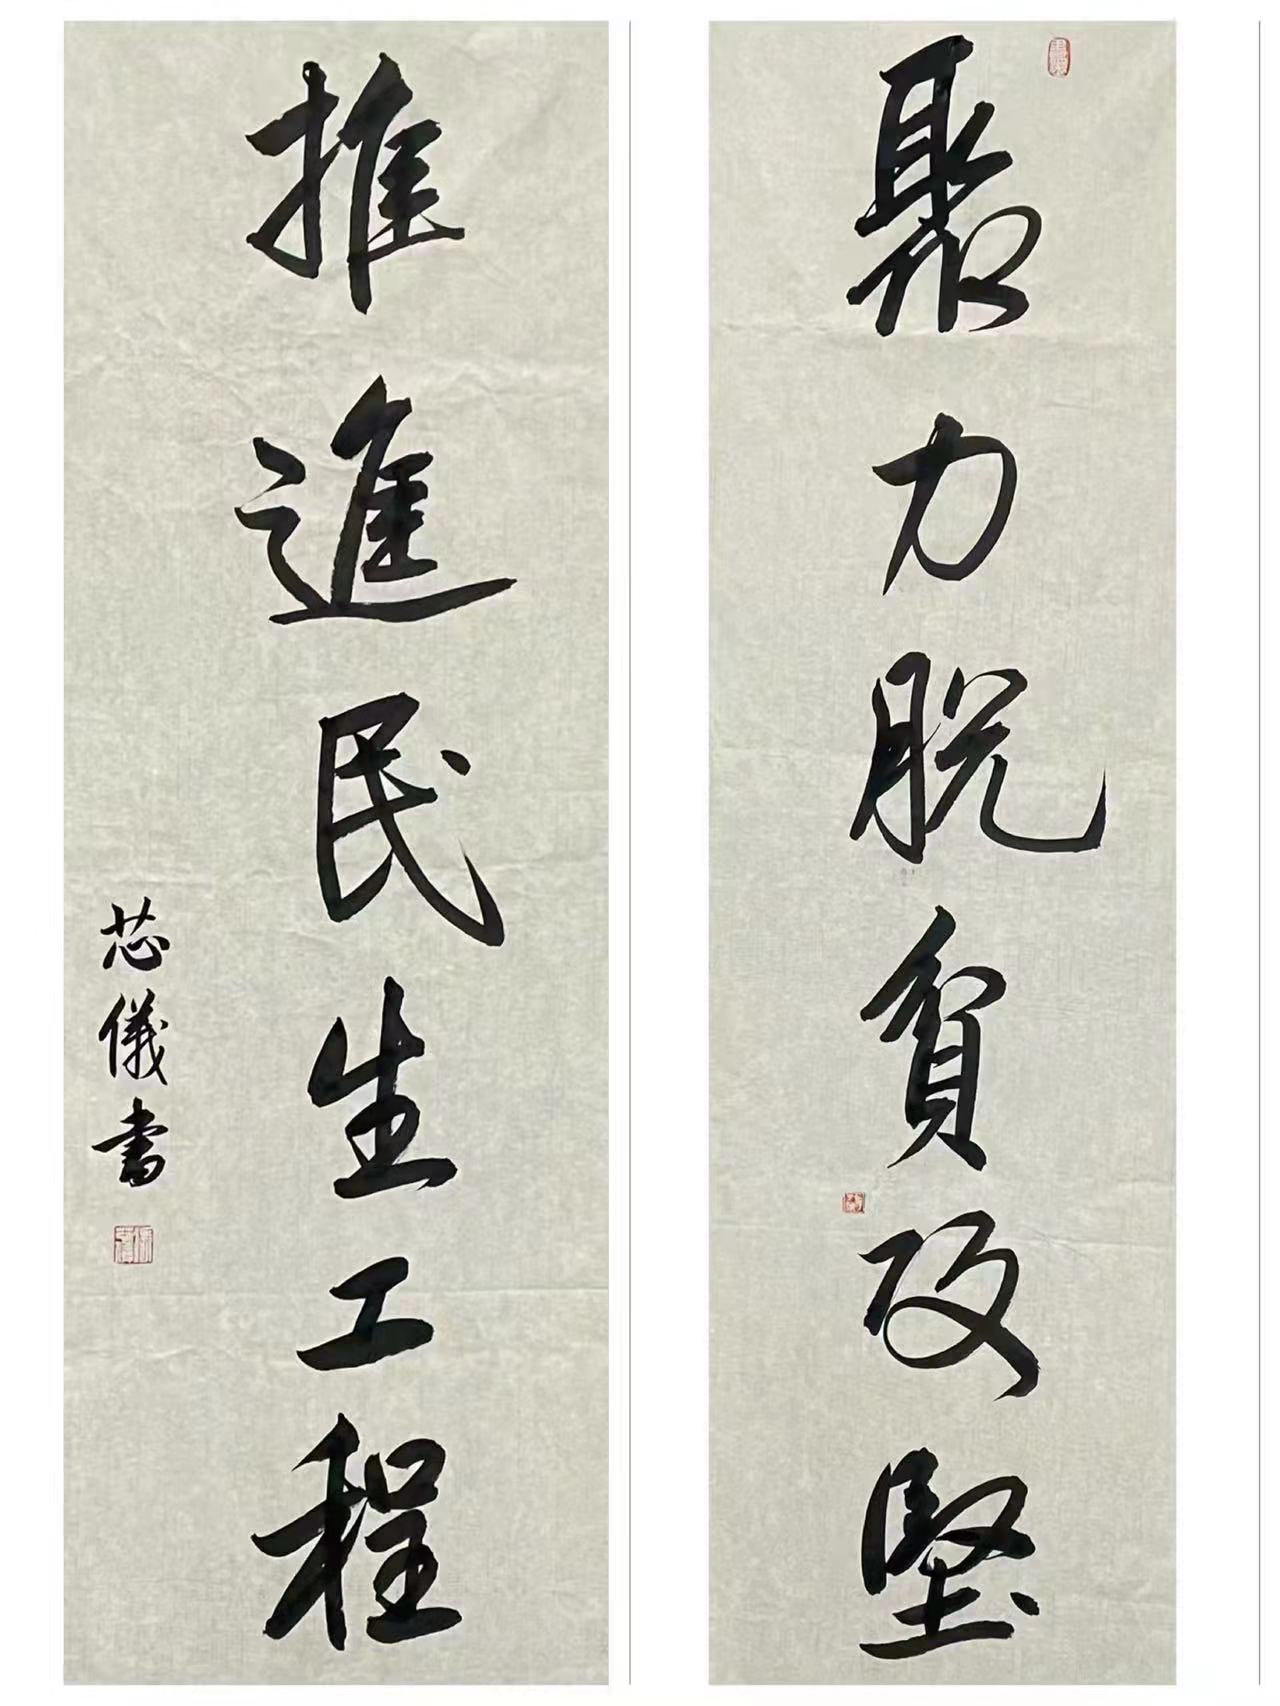 聚力脱貧攻堅
推進民生工程
芯儀書